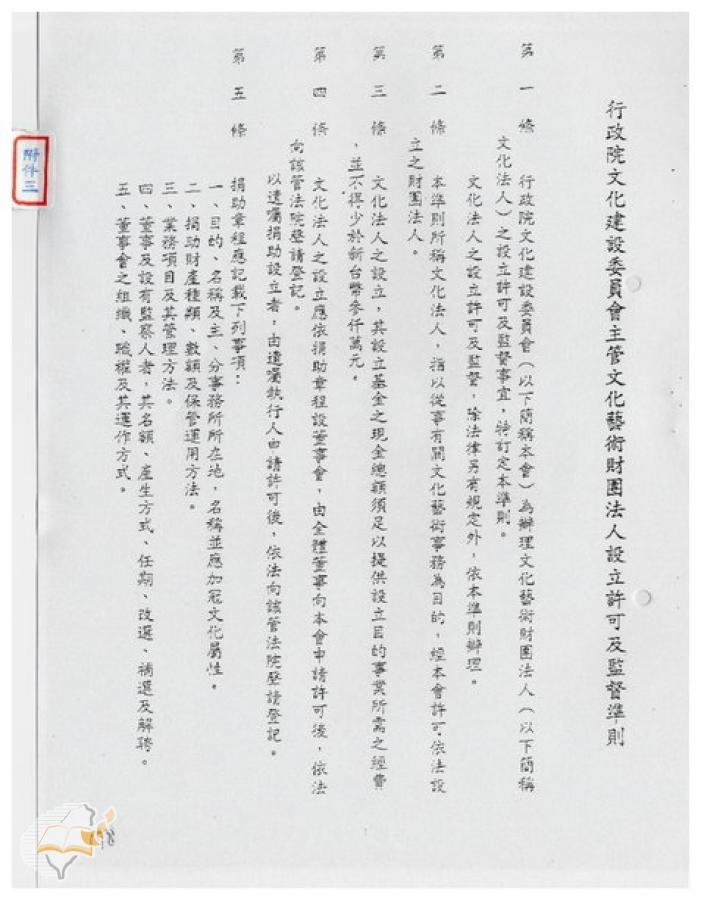 行政院文化建設委員會主管文化藝術財團法人設立許可及監督準則
第一條　行政院文化建設委員會（以下簡稱本會）為辦理文化藝術財團法人（以下簡稱
文化法人）之設立許可及監督事宜，特訂定本準則。
文化法人之設立許可及監督，除法律另有規定外，依本準則辦理。
第二條　本準則所稱文化法人，指以從事有關文化藝術事務為目的，經本會許可，依法設
立之財團法人。
第三條　文化法人之設立，其設立基金之現金總額須足以提供設立目的事業所需之經費
，並不得少於新台幣參仟萬元。
第四條　文化法人之設立應依捐助章程設董事會，由全體董事向本會申請許可後，依法
向該管法院登請登記。
以遺囑捐助設立者，由遺囑執行人申請許可後，依法向該管法院登請登記。
第五條　捐助章程應記載下列事項：
一、目的、名稱及主、分事務所所在地，名稱並應加冠文化屬性。
二、捐助財產種類、數額及保管運用方法。
三、業務項目及其管理方法。
四、董事及設有監察人者，其名額、產生方式、任期、改選、補選及解聘。
五、董事會之組織、職權及其運作方式。
附件三